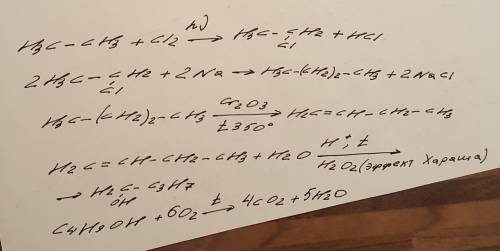 H3C-CH3 + Cl2 →(hν) H3C-CH2 + HCl
Cl
2H3C-CH2 + 2Na → H3C-(CH2)2-CH3 + 2NaCl
Cl
H3C-(CH2)2-CH3 →(Cr2O3, t 350°) H2C=CH-CH2-CH3
H2C=CH-CH2-CH3 + H2O →(H+, t; H2O2 (эффект Хараша))
→ H2C-C3H7
OH
C4H9OH + 6O2 →(t) 4CO2 + 5H2O